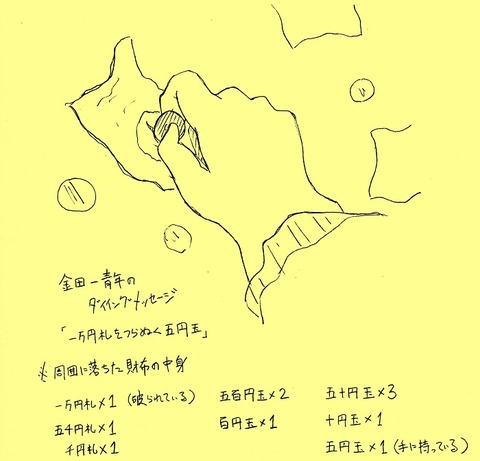 金田一青年の
ダイイングメッセージ
「一万円札をつらぬく五円玉」
※周囲に落ちた財布の中身
一万円札×1 (破られている)
五千円札×1
千円札×1
五百円玉×2
百円玉×1
五十円玉×3
十円玉×1
五円玉×1 (手に持っている)